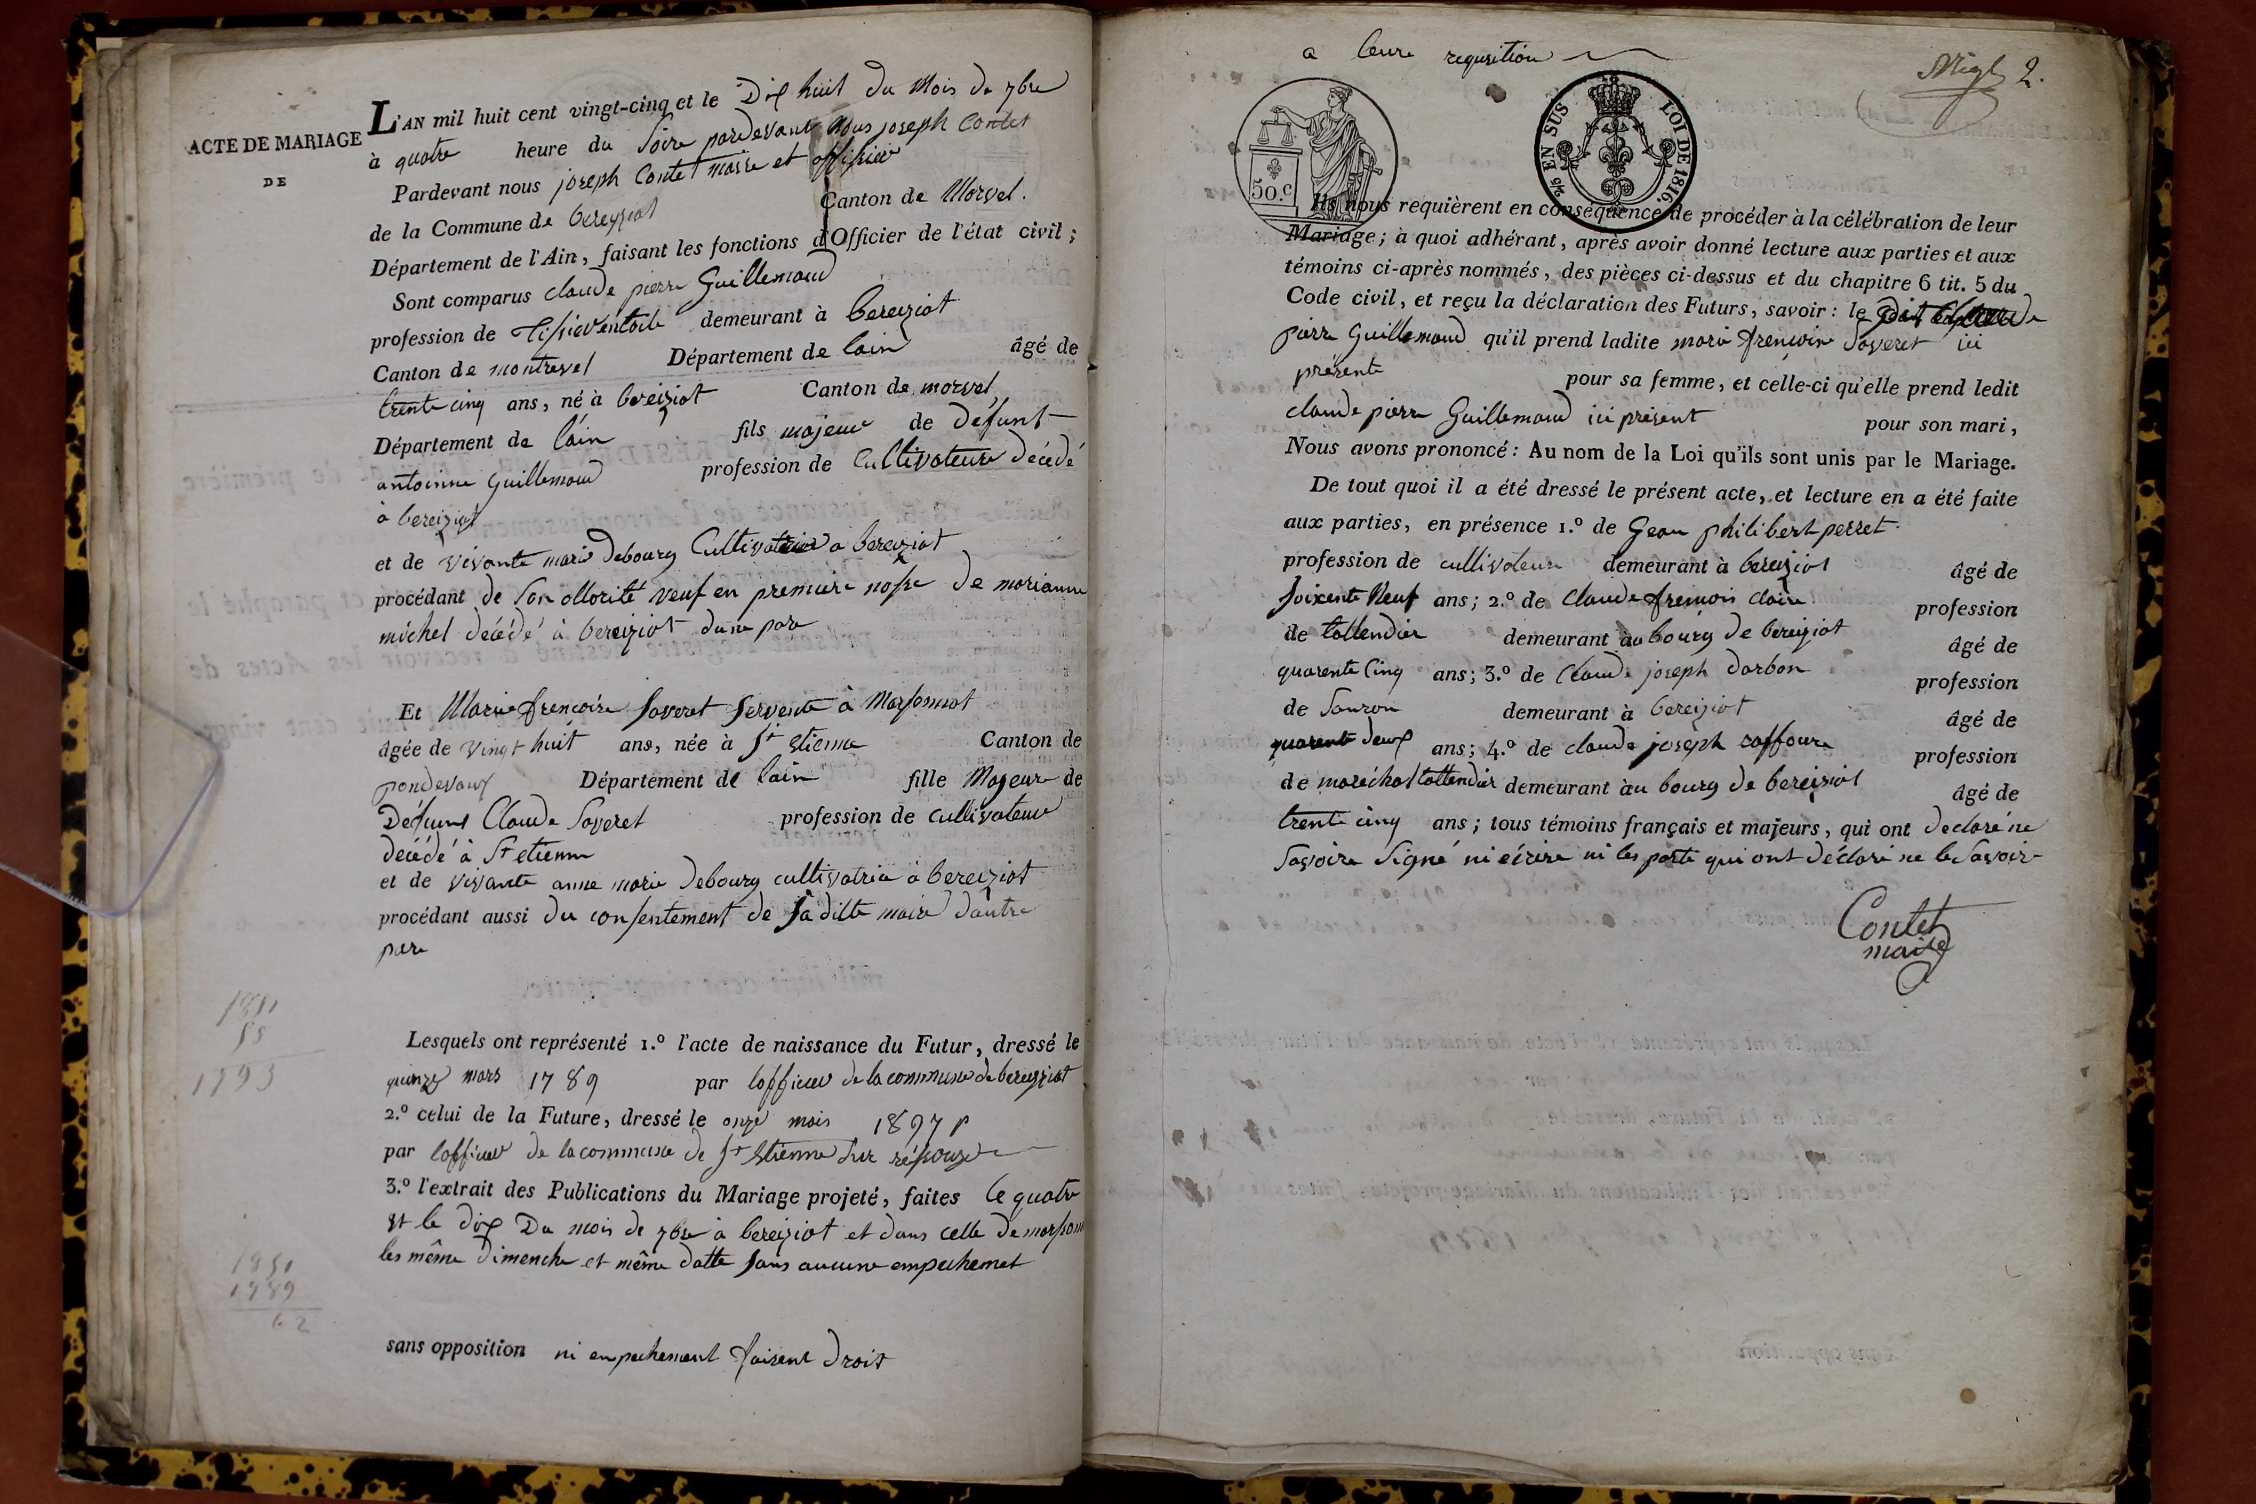 ACTE DE MARIAGE
DE
L'AN mil huit cent vingt-cinq et le Dix huit du Mois de 7bre
à quatre heure du Soire pardevant nous joseph Contet
Pardevant nous joseph Contet maire et officier
de la Commune de bereyziat Canton de Morvel.
Département de l'Ain, faisant les fonctions d'Officier de l'état civil;
Sont comparus claude pierre Guillemaud
profession de demeurant à bereiziat
Canton de montrevel Département de lain âgé de
trente cinq ans, né à bereiziat Canton de morvel
Département de lain fils majeur de défunt
antoinne Guillemaud profession de Cultivateure décédé
à bereiziat
et de vivante marie debourg Cultivatrice a bereiziat
procédant de Son ottorité veuf en premiere nosse de marianne
michel décédé à bereiziat dune pare
Et Marie frencoise Saveret Servente à Marsonnat
âgée de vingt huit ans, née à St Etienne Canton de
pondevaux Département de lain fille Majeure de
Défunt Claude Saveret profession de cultivateur
décédé à St etienne
et de vivante anne marie debourg cultivatrice à bereiziat
procédant aussi du consentement de sa ditte maire dautre
pare
1851
58
1793
Lesquels ont représenté 1.º l'acte de naissance du Futur, dressé le
quinze mars 1789 par lofficier de la commune de bereyziat
2.º celui de la Future, dressé le onze mois 1897
par lofficier de la commune de St Etienne Sur résouze
3.º l'extrait des Publications du Mariage projeté, faites le quatre
Et le dix Du mois de 7bre à bereiziat et dans celle de marsonn
les même Dimenche et même datte sans aucune empechemet
1851
1789
62
sans opposition ni empechement faisent droit
a leure requsition
2.
50.C
EN SUS
LOI DE 1816.
Ils nous requièrent en conséquence de procéder à la célébration de leur
Mariage; à quoi adhérant, après avoir donné lecture aux parties et aux
témoins ci-après nommés, des pièces ci-dessus et du chapitre 6 tit. 5 du
Code civil, et reçu la déclaration des Futurs, savoir: le dit claude
pierre Guillemaud qu'il prend ladite marie frençoise Saveret ici
présente pour sa femme, et celle-ci qu'elle prend ledit
claude pierre Guillemaud ici présent pour son mari,
Nous avons prononcé: Au nom de la Loi qu'ils sont unis par le Mariage.
De tout quoi il a été dressé le présent acte, et lecture en a été faite
aux parties, en présence 1.º de Gean philibert perret
profession de cultivateur demeurant à bereiziat âgé de
soixente Neuf ans; 2.º de Claude frencois claire profession
de tallendier demeurant au bourg de bereiziat âgé de
quarente Cinq ans; 3.º de Claude joseph darbon profession
de demeurant à bereiziat âgé de
quarente deux ans; 4.º de claude joseph profession
de maréchal tallendier demeurant au bourg de bereiziat âgé de
trente cinq ans; tous témoins français et majeurs, qui ont declaré ne
Savoire Signé ni écrire ni les parti qui ont déclaré ne le Savoir
Contet
maire